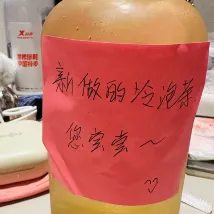 新做的冷泡茶
您尝尝~